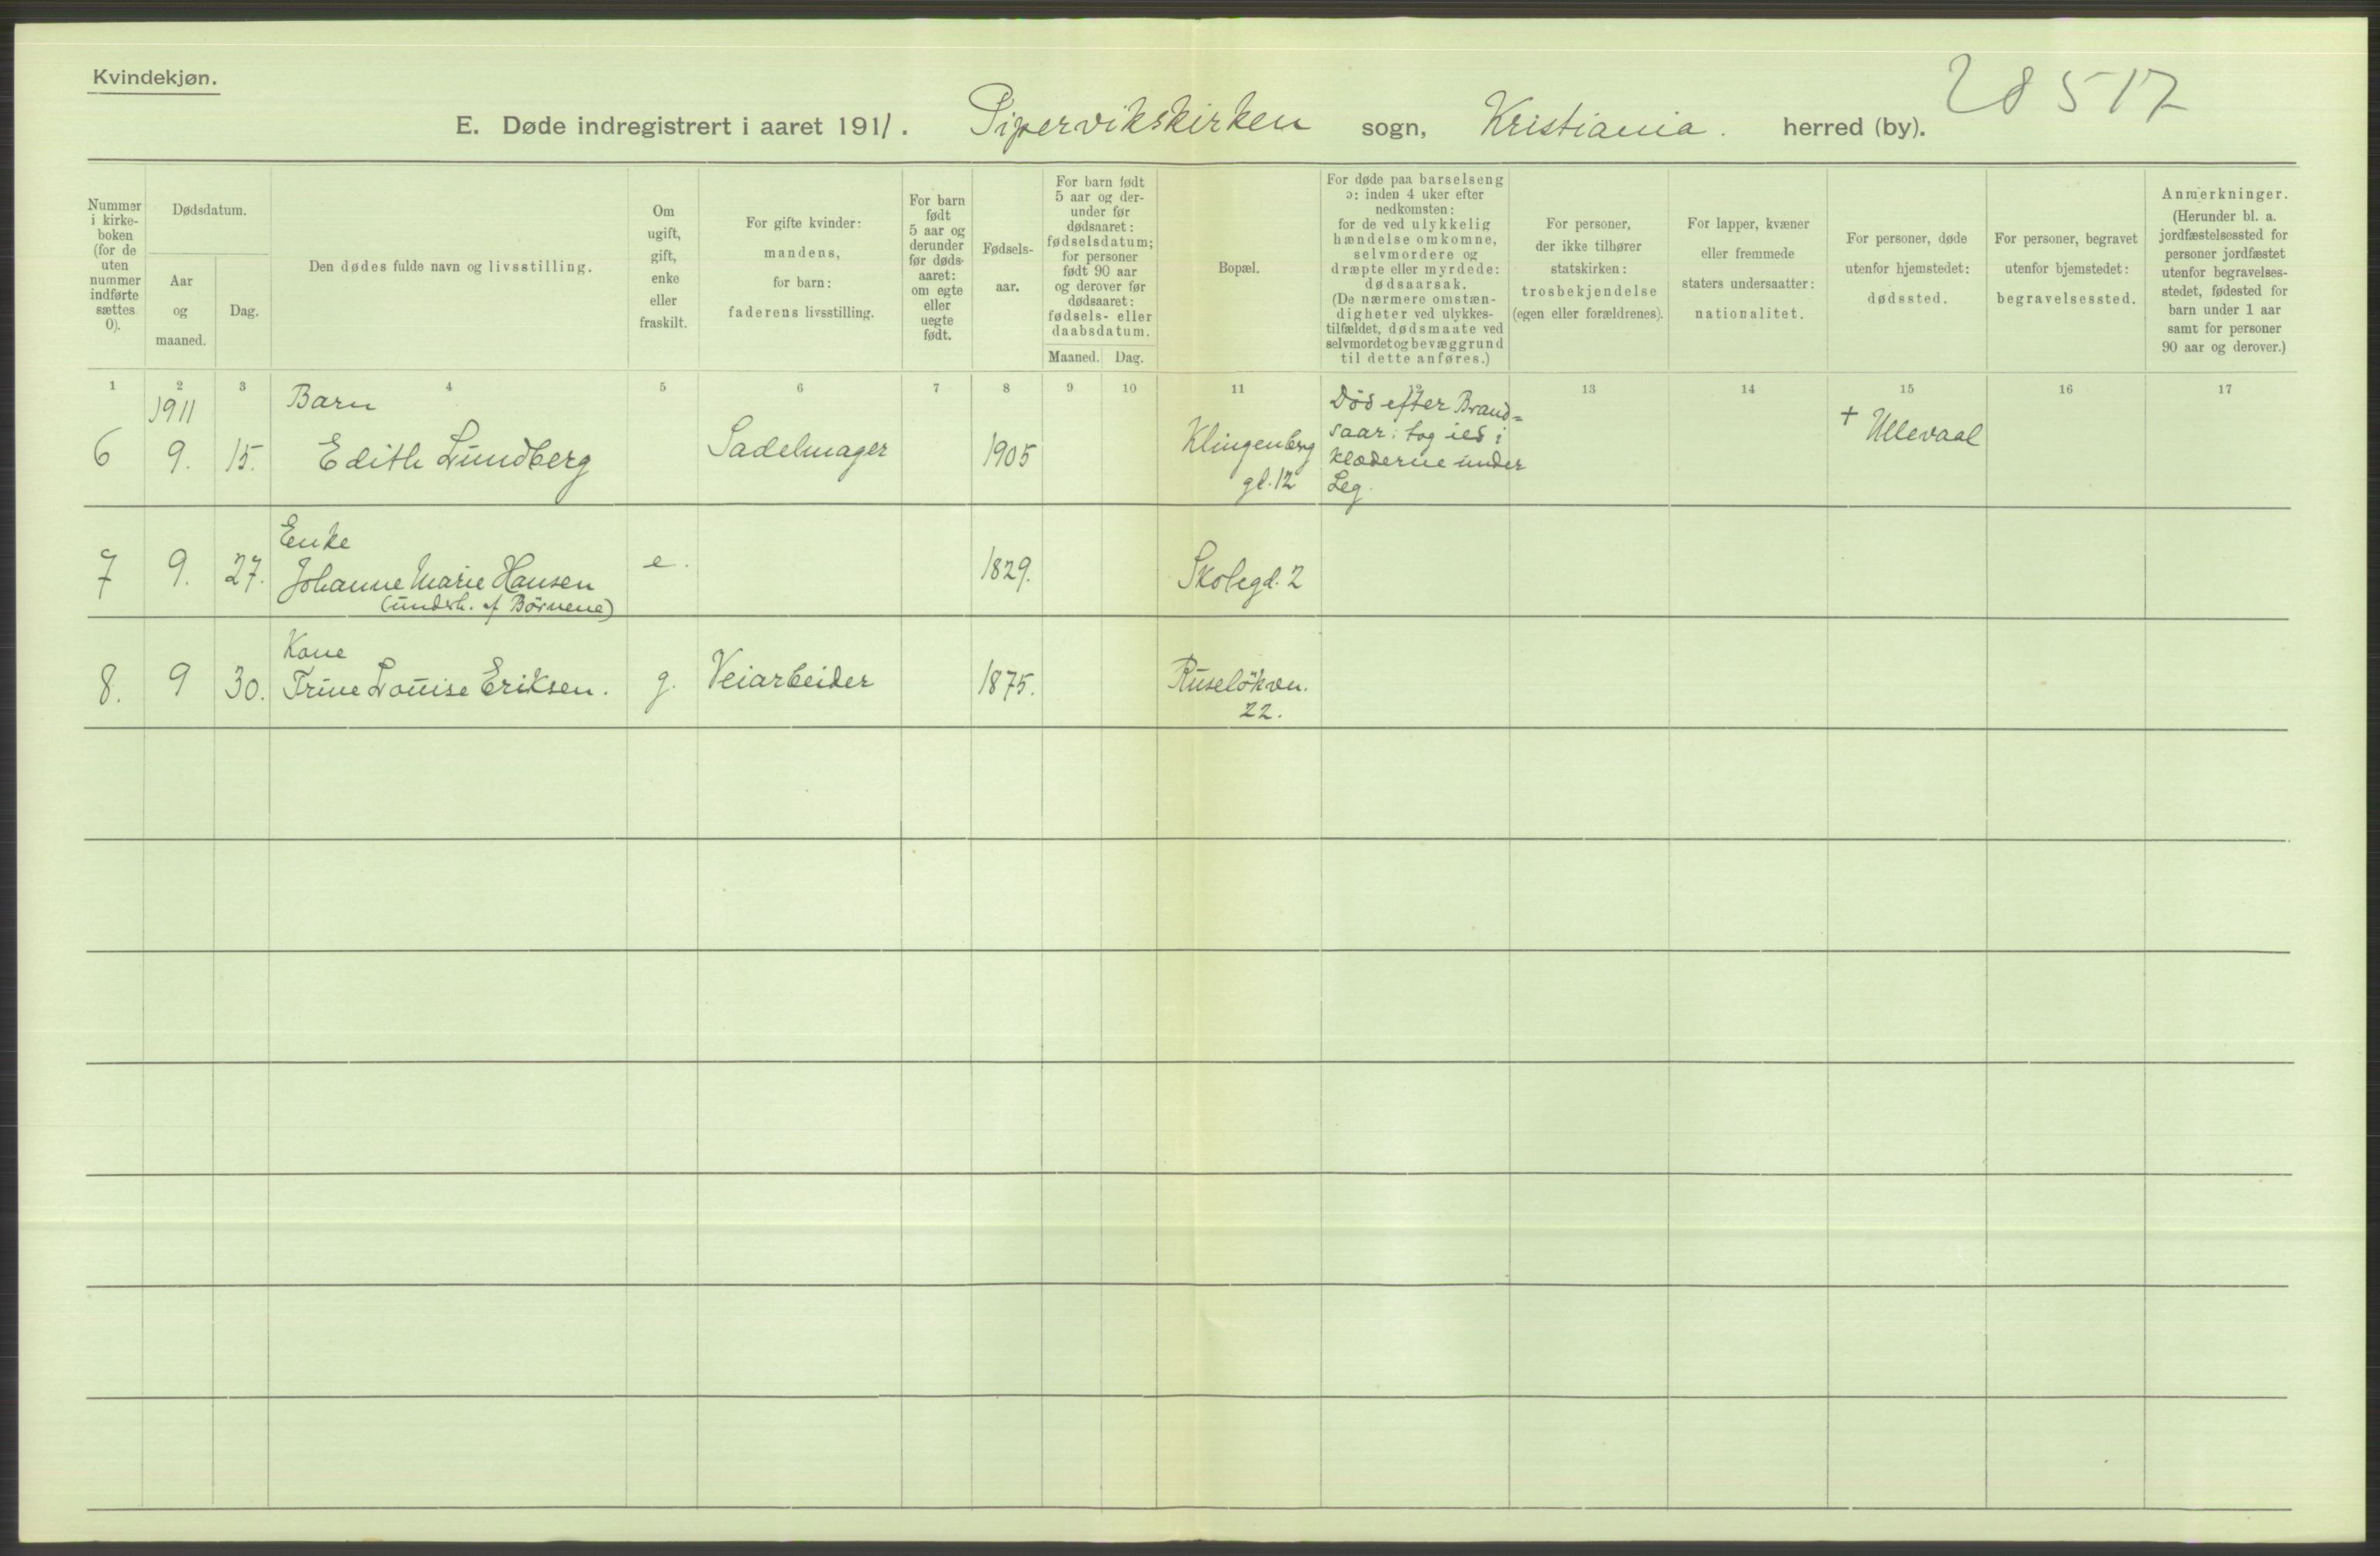 Kvindekjøn.
28517
E. Døde indregistrert i aaret 1911. Pipervikskirken sogn, Kristiania. herred (by).
Nummer
i kirke-
boken
(for de
uten
nummer
indførte
sættes
0).
Dødsdatum.
Aar
og
maaned.
Dag.
Den dødes fulde navn og livsstilling.
Om
ugift,
gift,
enke
eller
fraskilt.
For gifte kvinder:
mandens,
for barn:
faderens livsstilling.
For barn
født
5 aar og
derunder
før døds-
aaret:
om egte
eller
uegte
født.
Fødsels-
aar.
For barn født
5 aar og der-
under før
dødsaaret:
fødselsdatum;
for personer
født 90 aar
og derover før
dødsaaret:
fødsels- eller
daabsdatum.
Maaned. Dag.
Bopæl.
For døde paa barselseng
ɔ: inden 4 uker efter
nedkomsten:
for de ved ulykkelig
hændelse omkomne,
selvmordere og
dræpte eller myrdede:
dødsaarsak.
(De nærmere omstæn-
digheter ved ulykkes-
tilfældet, dødsmaate ved
selvmordet og bevæggrund
til dette anføres.)
For personer,
der ikke tilhører
statskirken:
trosbekjendelse
(egen eller forældrenes).
For lapper, kvæner
eller fremmede
staters undersaatter:
nationalitet.
For personer, døde
utenfor hjemstedet:
dødssted.
For personer, begravet
utenfor hjemstedet:
begravelsessted.
Anmerkninger.
(Herunder bl. a.
jordfæstelsessted for
personer jordfæstet
utenfor begravelses-
stedet, fødested for
barn under 1 aar
samt for personer
90 aar og derover.)
1 2 3 4 5 6 7 8 9 10 11 12 13 14 15 16 17
1911
Barn
6 9. 15. Edith Lundberg Sadelmager 1905
Klingenberg
gd. 12
Død efter Brand-
saar; tog ild i
klæderne under
Leg.
+ Ullevaal
Enke
7 9. 27. Johanne Marie Hansen e. 1829. Skolegd. 2
(underh. af Børnene)
Kone
8. 9 30. Trine Louise Eriksen. g. Veiarbeider 1875. Ruseløkvn.
22.